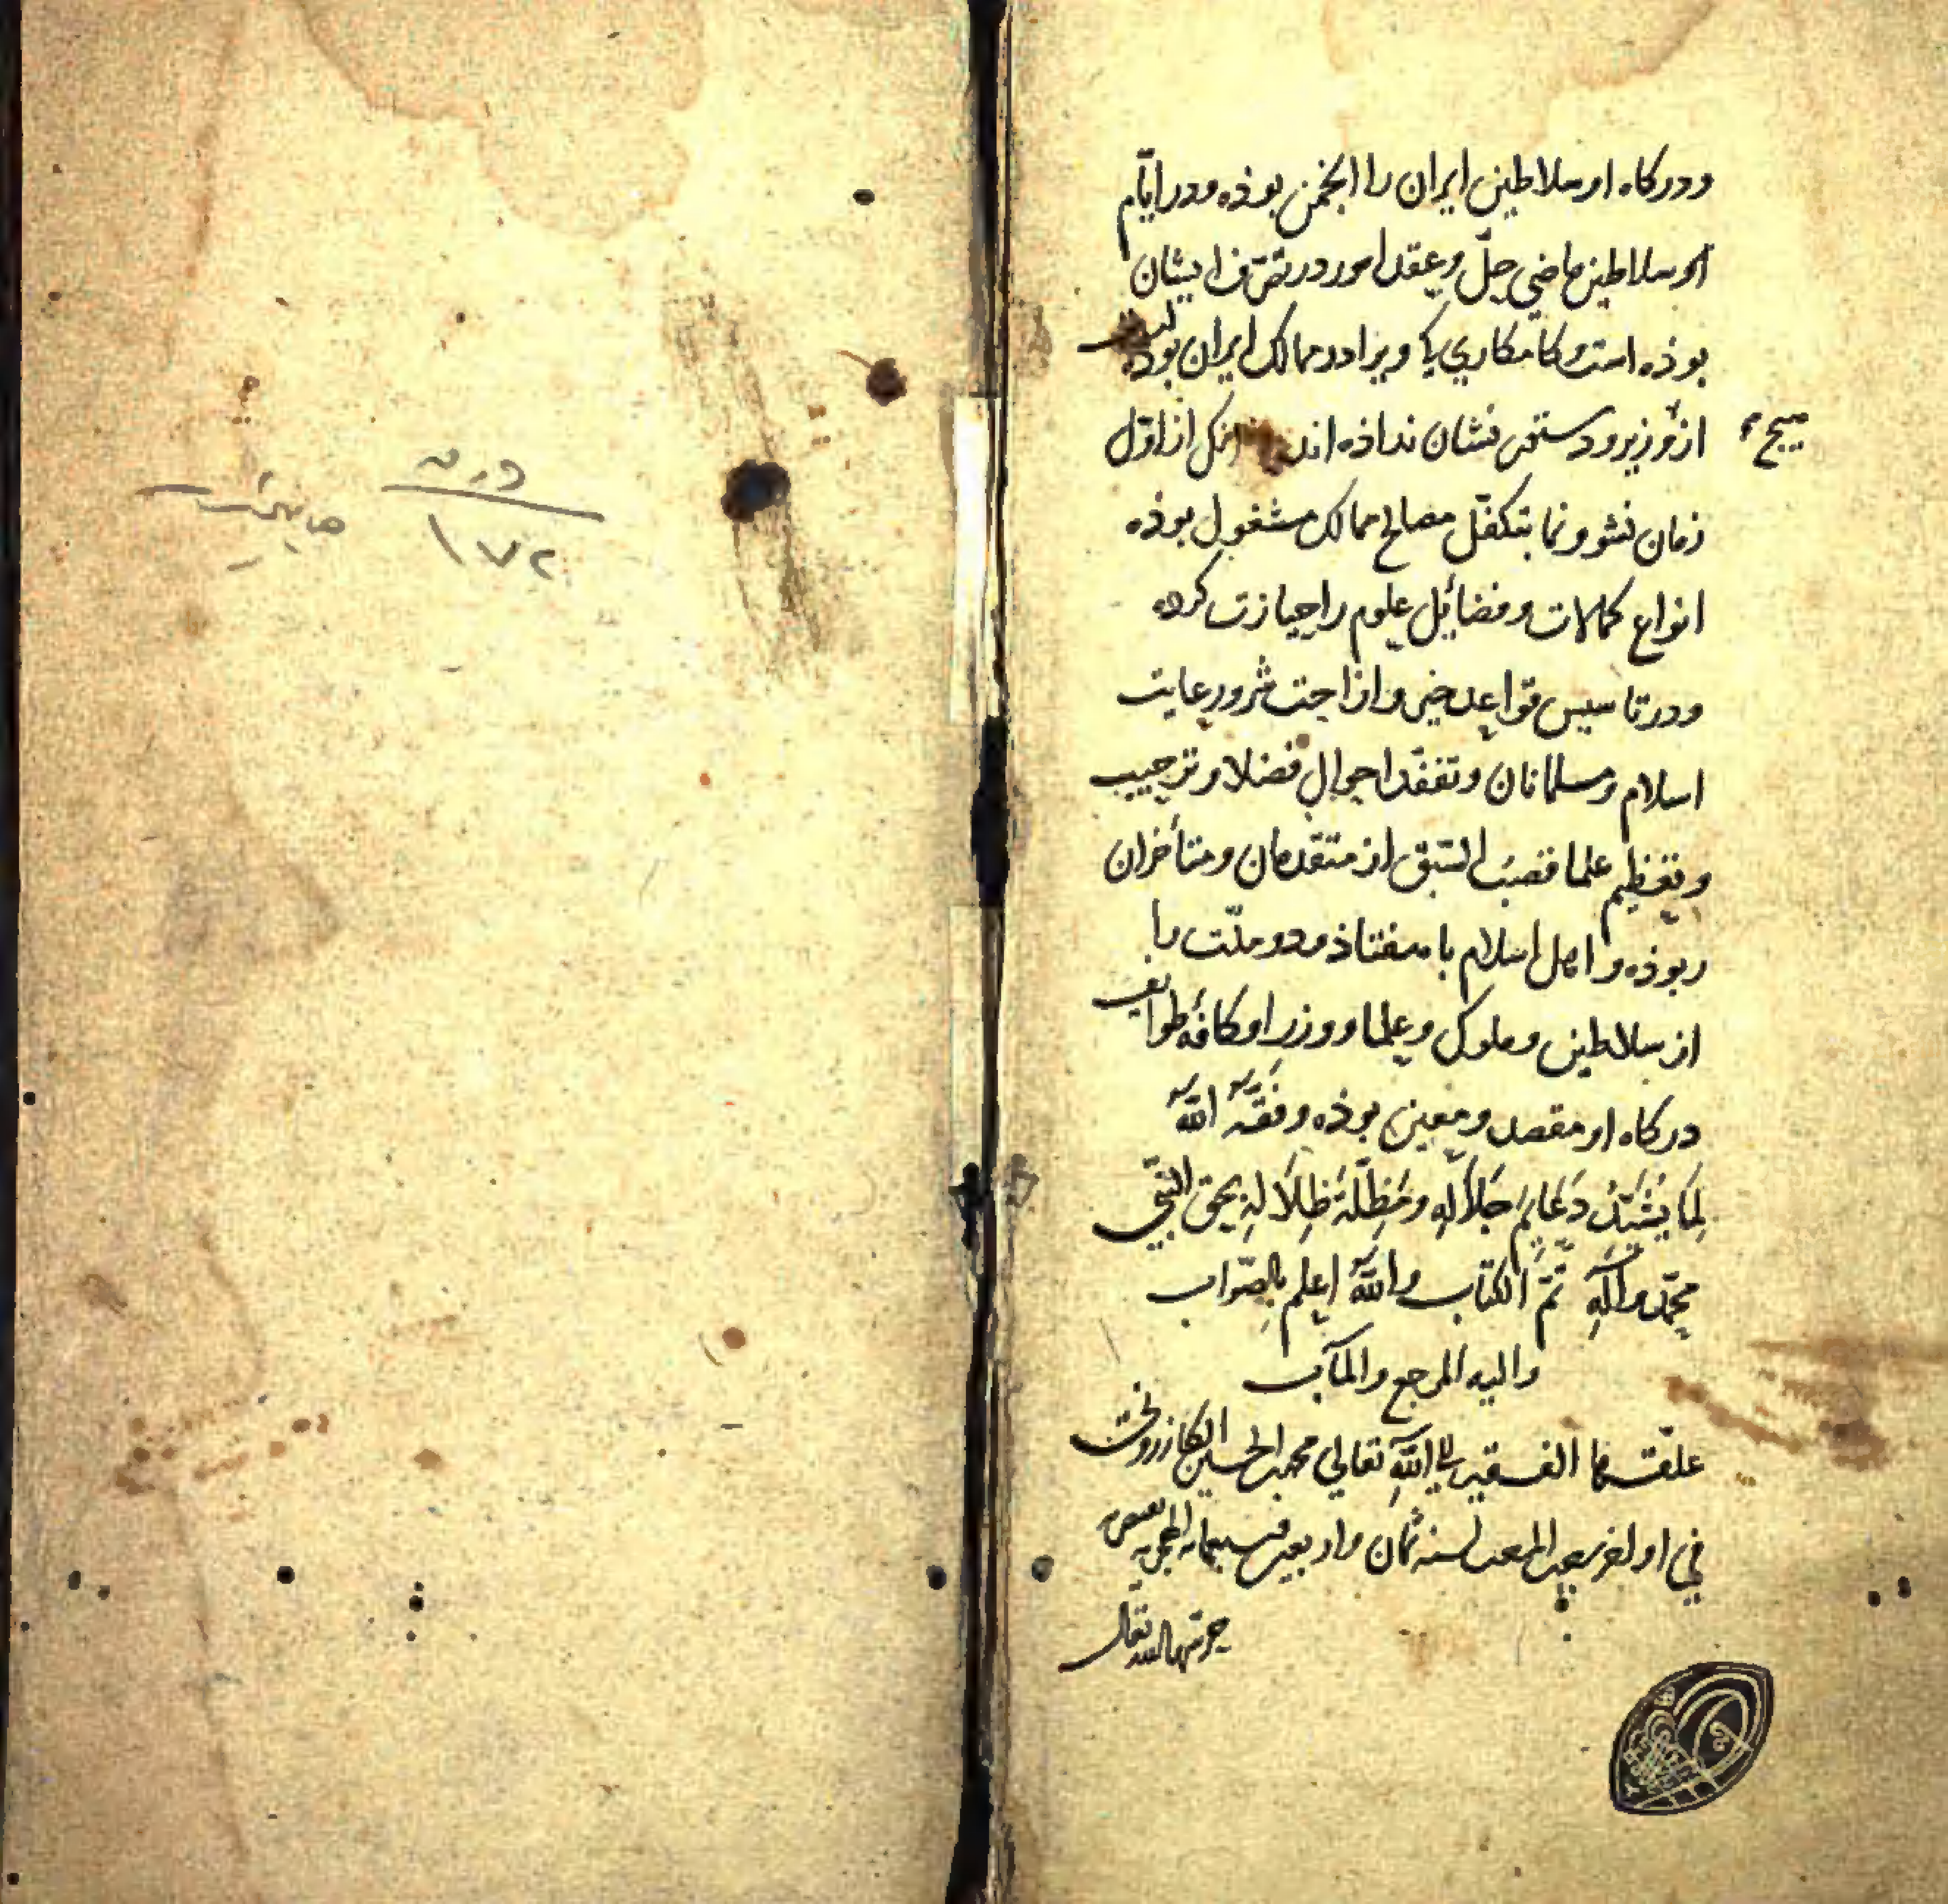 ودركاه او سلاطين ايران را انجمن بوذه ودر ايّام
سلاطين ماضي حلّ وعقد امور در تصرّف ايشان
بوذه است وكامكاري ويرا در ممالك ايران بوده كه
هيچ
از وزير ودستور نشان نداذه اند از اوّل
زمان نشو ونما بتكفّل مصالح ممالك مشغول بوذه
انواع كمالات وفضائل علوم را حيازت كرده
ودر تاسيس قواعد خير وازاحت شرّ ورعايت
اسلام ومسلمانان وتفقّد احوال فضلا وترحيب
وتعظيم علما قصب السّبق از متقدمان ومتأخران
ربوذه واهل اسلام با هفتاذ ودو ملّت را
از سلاطين وملوك وعلما ووزرا وكافه طوايف
دركاه او مقصد ومعين بوذه وفّقه الله
لِمَا يُشَيّدُ دَعَايِمَ جَلَالِهِ ومَظَلّة ظِلَالِهِ بحق النّبي
محمّد وآلهِ تمّ الكتاب والله اعلم بالصّواب
واليه المرجع والمآب
علّقها الفقير الى الله تعالى محمد الحسين الكازروني
في اواخر رجب المرجب لسنه ثمان واربعين سبعمايه الهجريه
حرسها الله تعالى
درنه
١٧٢